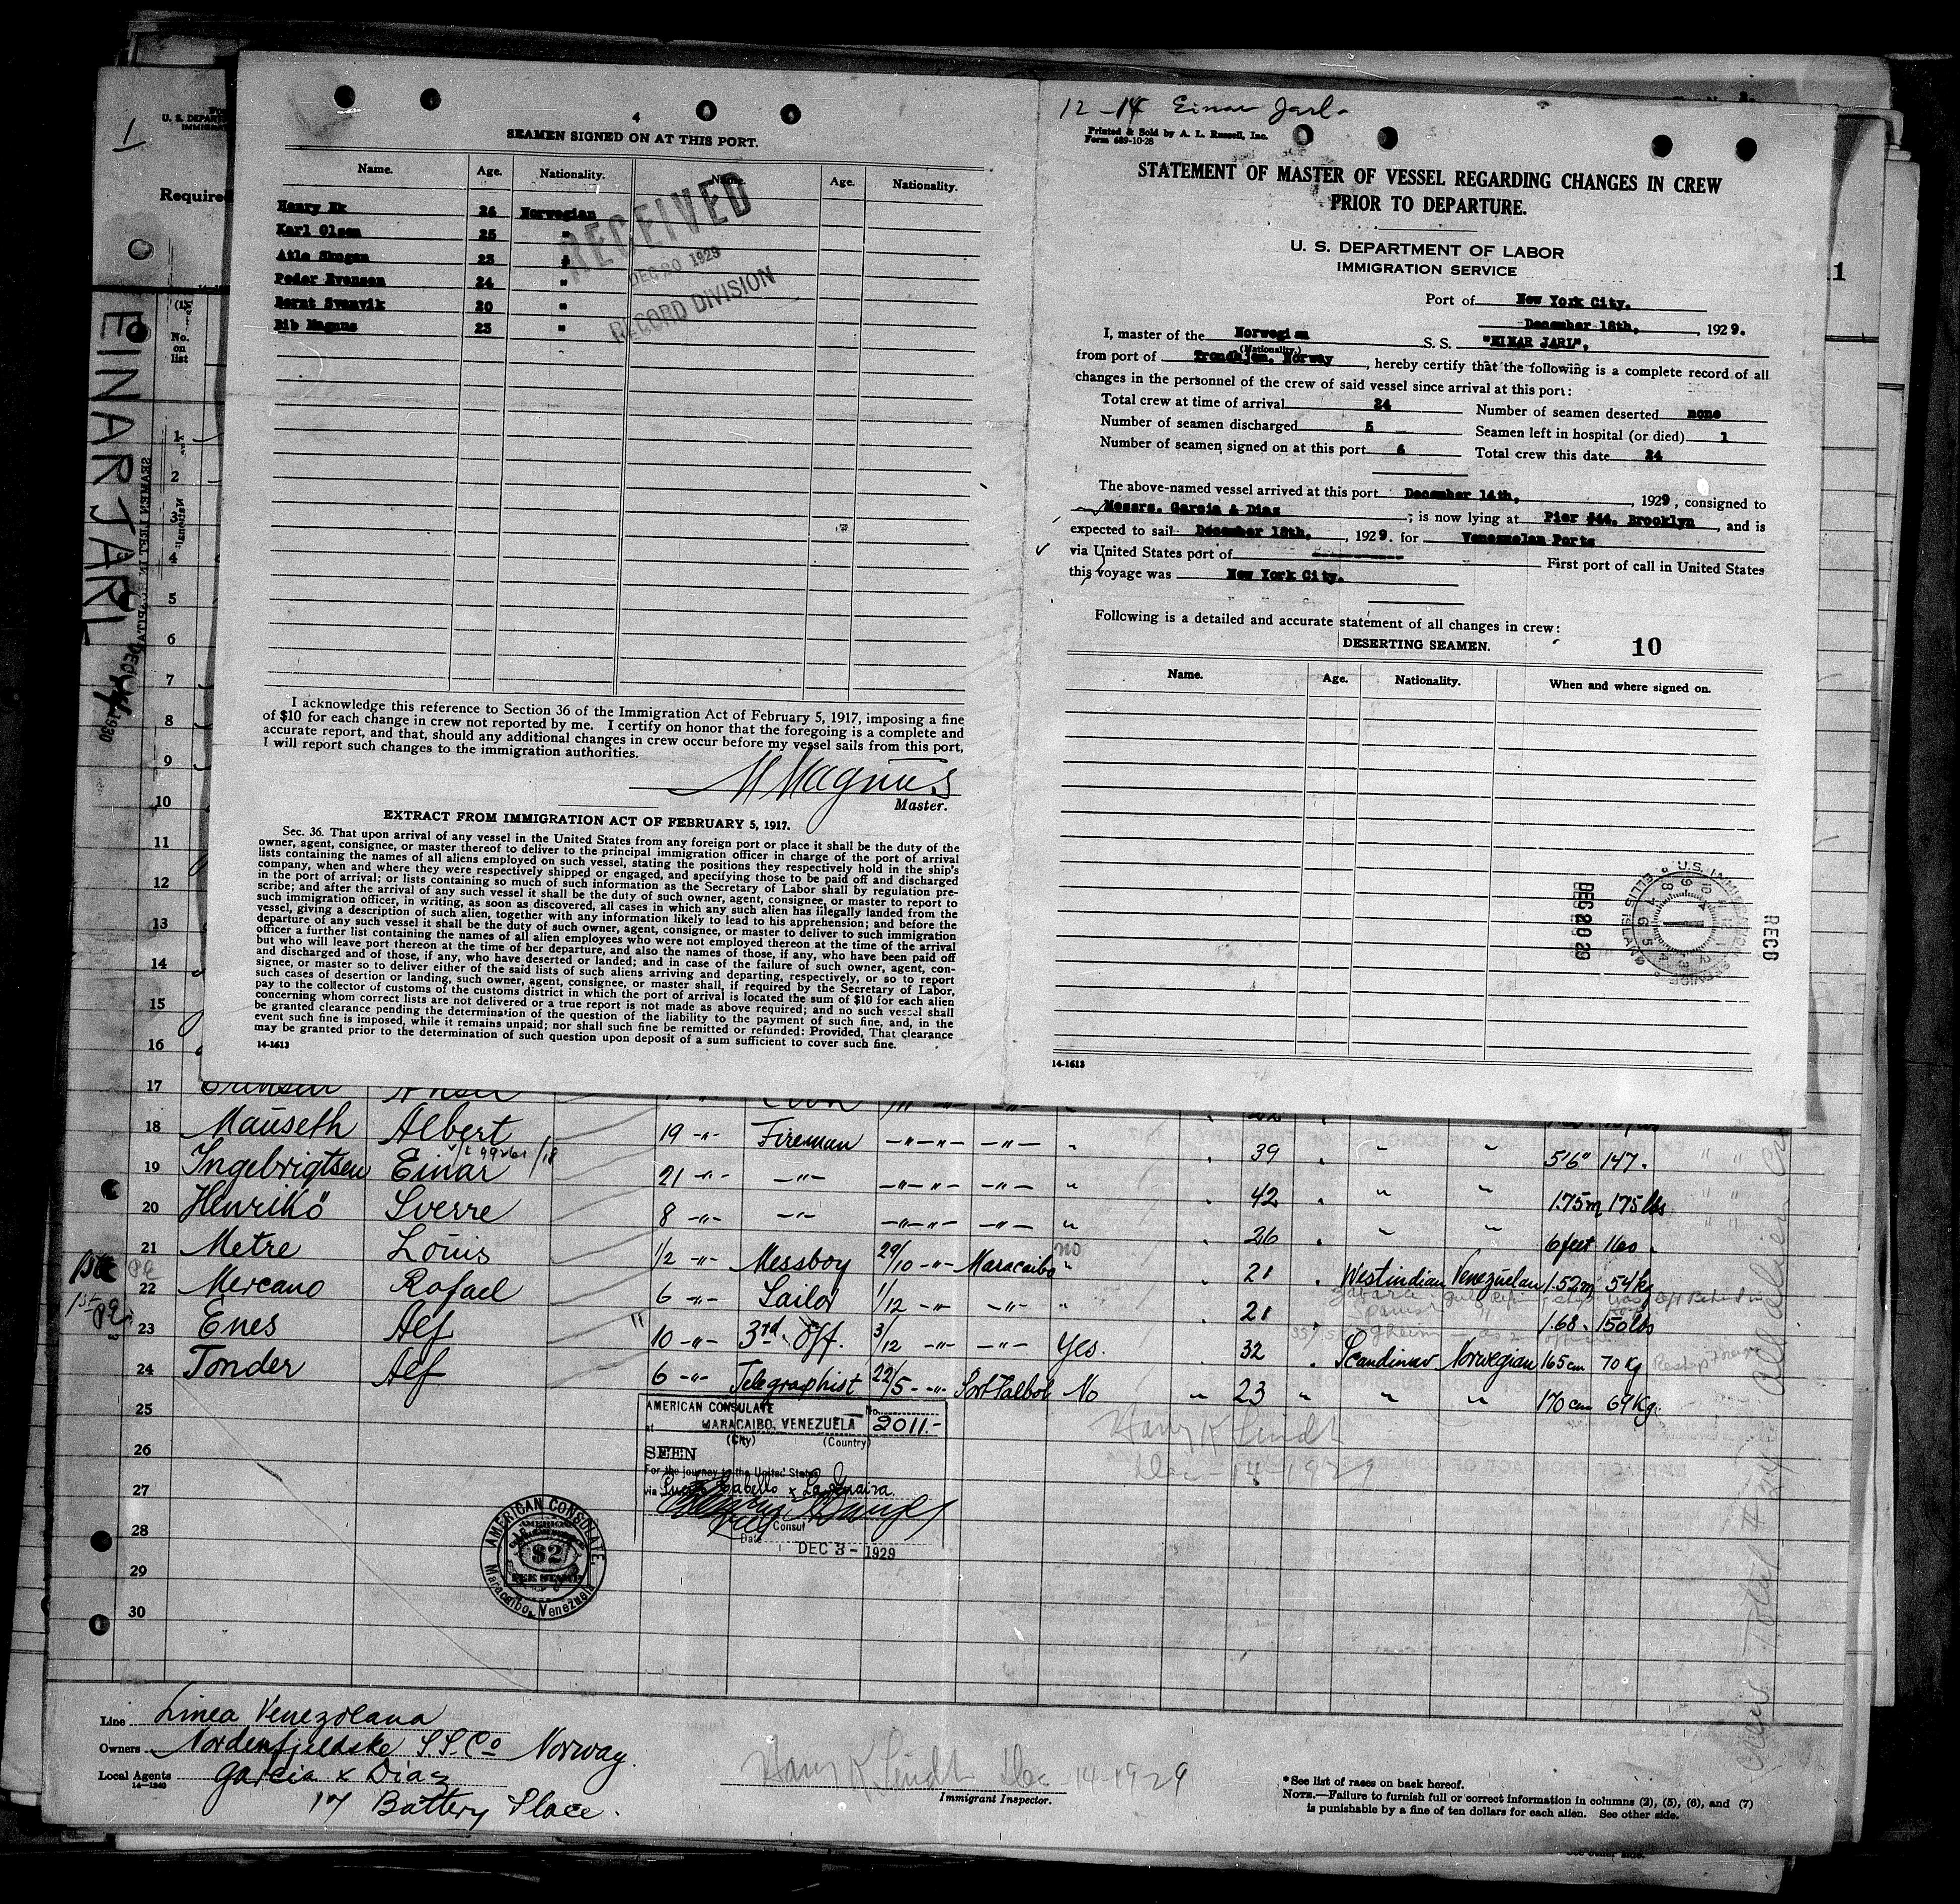 4
SEAMEN SIGNED ON AT THIS PORT.
Name. Age. Nationality. Name. Age. Nationality.
Henry Ek 26 Norwegian
Karl Olsen 25 "
Atle Skogen 23 "
Peder Evensen 24 "
Bernt Svanvik 20 "
Bib Magnus 23 "
RECEIVED
DEC 20 1929
RECORD DIVISION
I acknowledge this reference to Section 36 of the Immigration Act of February 5, 1917, imposing a fine
of $10 for each change in crew not reported by me. I certify on honor that the foregoing is a complete and
accurate report, and that, should any additional changes in crew occur before my vessel sails from this port,
I will report such changes to the immigration authorities.
M Magnus
Master.
EXTRACT FROM IMMIGRATION ACT OF FEBRUARY 5, 1917.
Sec. 36. That upon arrival of any vessel in the United States from any foreign port or place it shall be the duty of the
owner, agent, consignee, or master thereof to deliver to the principal immigration officer in charge of the port of arrival
lists containing the names of all aliens employed on such vessel, stating the positions they respectively hold in the ship's
company, when and where they were respectively shipped or engaged, and specifying those to be paid off and discharged
in the port of arrival; or lists containing so much of such information as the Secretary of Labor shall by regulation pre-
scribe; and after the arrival of any such vessel it shall be the duty of such owner, agent, consignee, or master to report to
such immigration officer, in writing, as soon as discovered, all cases in which any such alien has illegally landed from the
vessel, giving a description of such alien, together with any information likely to lead to his apprehension; and before the
departure of any such vessel it shall be the duty of such owner, agent, consignee, or master to deliver to such immigration
officer a further list containing the names of all alien employees who were not employed thereon at the time of the arrival
but who will leave port thereon at the time of her departure, and also the names of those, if any, who have been paid off
and discharged and of those, if any, who have deserted or landed; and in case of the failure of such owner, agent, con-
signee, or master so to deliver either of the said lists of such aliens arriving and departing, respectively, or so to report
such cases of desertion or landing, such owner, agent, consignee, or master shall, if required by the Secretary of Labor,
pay to the collector of customs of the customs district in which the port of arrival is located the sum of $10 for each alien
concerning whom correct lists are not delivered or a true report is not made as above required; and no such vessel shall
be granted clearance pending the determination of the question of the liability to the payment of such fine, and, in the
event such fine is imposed, while it remains unpaid; nor shall such fine be remitted or refunded: Provided, That clearance
may be granted prior to the determination of such question upon deposit of a sum sufficient to cover such fine.
14-1613
12-14 Einar Jarl
Printed & Sold by A. L. Russell, Inc.
Form 689-10-28
STATEMENT OF MASTER OF VESSEL REGARDING CHANGES IN CREW
PRIOR TO DEPARTURE.
U. S. DEPARTMENT OF LABOR
IMMIGRATION SERVICE
Port of New York City.
December 18th, 1929.
I, master of the Norwegian S. S. "EINAR JARL",
(Nationality.)
from port of Trondhjem, Norway, hereby certify that the following is a complete record of all
changes in the personnel of the crew of said vessel since arrival at this port:
Total crew at time of arrival 24 Number of seamen deserted none
Number of seamen discharged 5 Seamen left in hospital (or died) 1
Number of seamen signed on at this port 6 Total crew this date 24
The above-named vessel arrived at this port December 14th, 1929, consigned to
Messrs. Garcia & Diaz; is now lying at Pier #44. Brooklyn, and is
expected to sail December 18th, 1929. for Venezuelan Ports
via United States port of First port of call in United States
this voyage was New York City.
Following is a detailed and accurate statement of all changes in crew:
DESERTING SEAMEN. 10
Name. Age. Nationality. When and where signed on.
DEC 20 29
U.S. IMMIGRATION SERVICE ELLIS ISLAND
REC'D
14-1613
1
U. S. DEPART
IMMIGRAT
Required
No.
on
list
EINAR JARL
1
2
3
4
5
6
7
8
9
10
11
12
13
14
15
16
17
18 Mauseth Albert 19 -"- Fireman -"- -"- " 39 " " 5'6" 147.
19 Ingebrigtsen Einar 21 -"- -"- -"- -"- " 42 " " 1.75m 175 lbs
20 Henrikö Sverre 8 -"- -"- -"- -"- " 26 " " 6 feet 160.
21 Metre Louis 1/2 -"- Messboy 29/10 -"- Maracaibo no 21 Westindian Venezuelan 1.52m 54 kg
22 Mercano Rafael 6 -"- Sailor 1/12 -"- -"- " 21 Spanish " 1.68. 150 lbs
23 Enes Alf 10 -"- 3rd Off. 3/12 -"- -"- Yes. 32 Scandinav Norwegian 165 cm 70 Kg
24 Tonder Alf 6 -"- Telegraphist 22/5 -"- Port Talbot No " 23 " " " 170 cm 69 Kg.
25
26
27
28
29
30
AMERICAN CONSULATE
at MARACAIBO, VENEZUELA No. 2011.-
(City) (Country)
SEEN
For the journey to the United States
via Puerto Cabello x La Guaira
Consul
Date DEC 3 - 1929
AMERICAN CONSULATE.
$2
FEE STAMP
Maracaibo, Venezuela
Harry K. Lindt
Dec 14-1929
Line Linea Venezolana
Owners Nordenfjeldske S.S. Co Norway.
Local Agents Garcia x Diaz
14-1240
17 Battery Place.
Harry K. Lindt Dec 14-1929
Immigrant Inspector.
*See list of races on back hereof.
NOTE.—Failure to furnish full or correct information in columns (2), (5), (6), and (7)
is punishable by a fine of ten dollars for each alien. See other side.